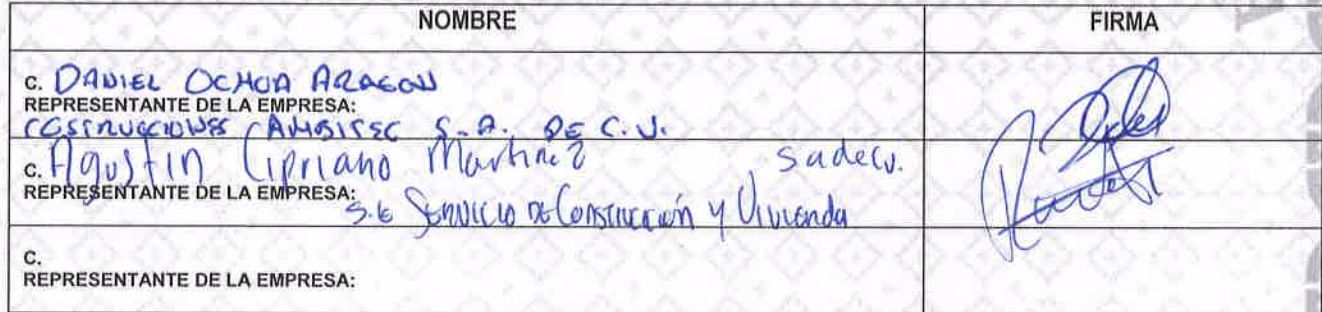 NOMBRE FIRMA
C. DANIEL OCHOA ARAGON
REPRESENTANTE DE LA EMPRESA:
S.A. DE C.V.
C. Agustin Cipriano Martinez sadecv.
REPRESENTANTE DE LA EMPRESA:
S.E Servicio de Construcción y Vivienda
C.
REPRESENTANTE DE LA EMPRESA: